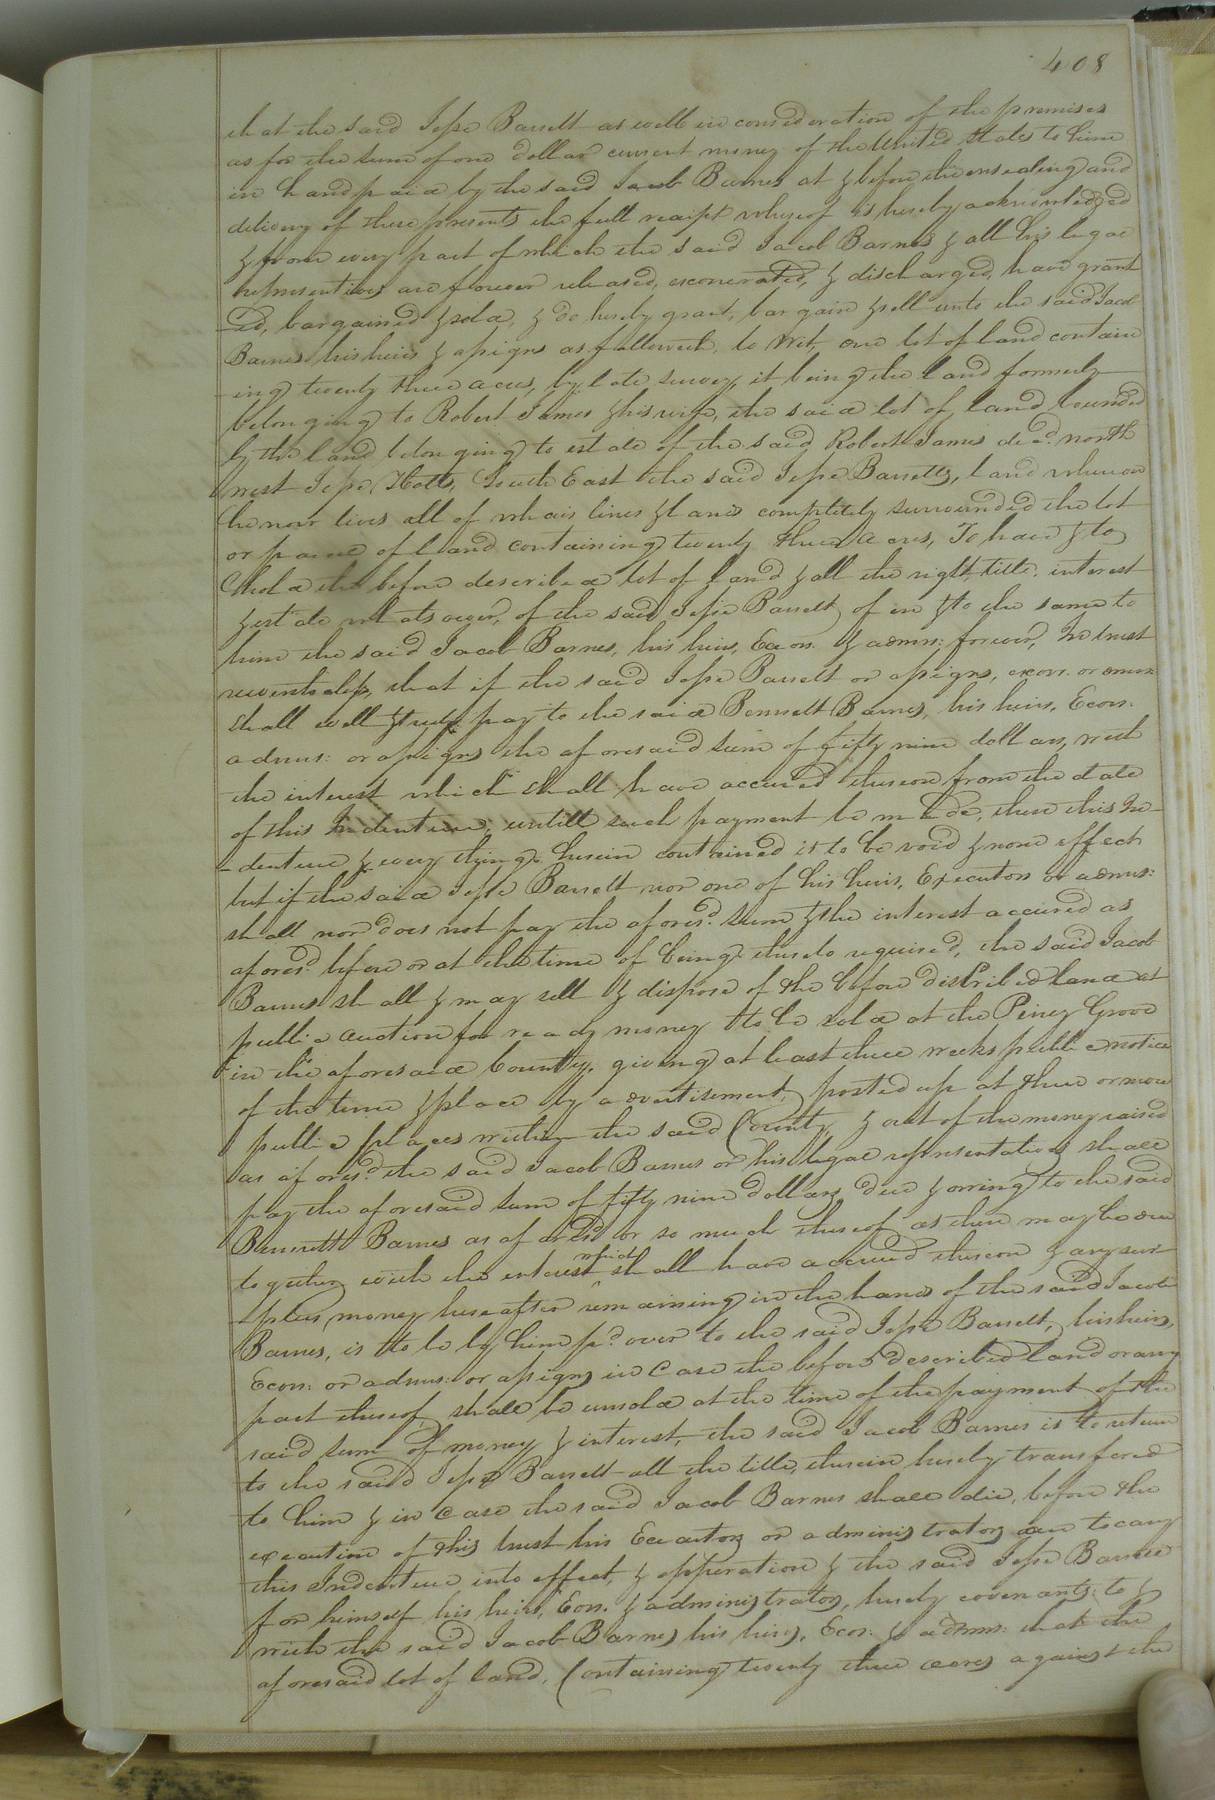 408
that the said Jesse Barrett as well in consideration of the premises
as for the sum of one dollar current money of the United States to him
in hand paid by the said Jacob Barnes at & before the ensealing and
delivery of these presents the full receipt whereof is hereby acknowledged
& from every part of which the said Jacob Barnes & all his legal
representatives are forever released, exonerated, & discharged, have grant
-ed, bargained & sold, & do hereby grant, bargain & sell unto the said Jacob
Barnes his heirs & assigns as followeth, to Wit, one lot of land contain
-ing twenty three acres, by late survey, it being the land formerly
belonging to Robert James & his wife, the said lot of land bounded
by the land belonging to estate of the said Robert James decd. north
west Jesse Hotts, South East the said Jesse Barretts, land whereon
he now lives all of whais lines & lands completely surrounded the lot
or parcel of land containing twenty three Acres, To have & to
hold the before described lot of land & all the right, title, interest
& estate whatsoever, of the said Jesse Barrett of in & to the same to
him the said Jacob Barnes, his heirs, Exors. & admrs: forever, In trust
nevertheless, that if the said Jesse Barrett or assigns, exors. or admrs
shall well & truly pay to the said Bennett Barnes, his heirs, Exors.
admrs: or assigns the aforesaid sum of fifty nine dollars, with
the interest which shall have accrued thereon from the date
of this Indenture, untill such payment be made, then this In-
-denture & every thing herein contained is to be void & none effect
but if the said Jesse Barrett nor one of his heirs, Executors or admrs:
shall nor does not pay the aforesd. sum & the interest accrued as
aforesd. before or at the time of being thereto required, the said Jacob
Barnes shall & may sell & dispose of the before discribed land at
public auction for ready money to be sold at the Piney Grove
in the aforesaid County, giving at least three weeks public notice
of the time & place by advertisement, posted up at three or more
public places within the said County, & out of the money raised
as aforesd. the said Jacob Barnes or his legal representatives shall
pay the aforesaid sum of fifty nine dollars due & owing to the said
Bennett Barnes as aforesd. or so much thereof as there may be due
together with the interest which shall have accrued thereon & any sur-
-plus money hereafter remaining in the hands of the said Jacob
Barnes, is to be by him pd. over to the said Jesse Barrett, his heirs,
Exors. or admrs: or assigns in Case the before described land or any
part thereof, shall be unsold at the time of the payment of the
said sum of money & interest, the said Jacob Barnes is to return
to the said Jesse Barrett all the title, therein hereby transfered
to him & in Case the said Jacob Barnes shall die, before the
execution of this trust his Executors or administrators are to cary
this Indenture into effect, & opperation & the said Jesse Barrett
for himself his heirs, Exors. & administrators, hereby covenants to &
with the said Jacob Barnes his heirs, Exors. & admrs. that the
aforesaid lot of land, Containing twenty three acres against the